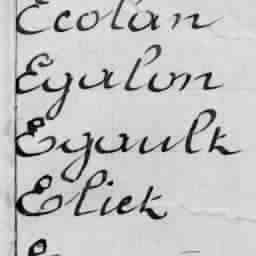 Ecolan
Egalon
Egault
Eliek